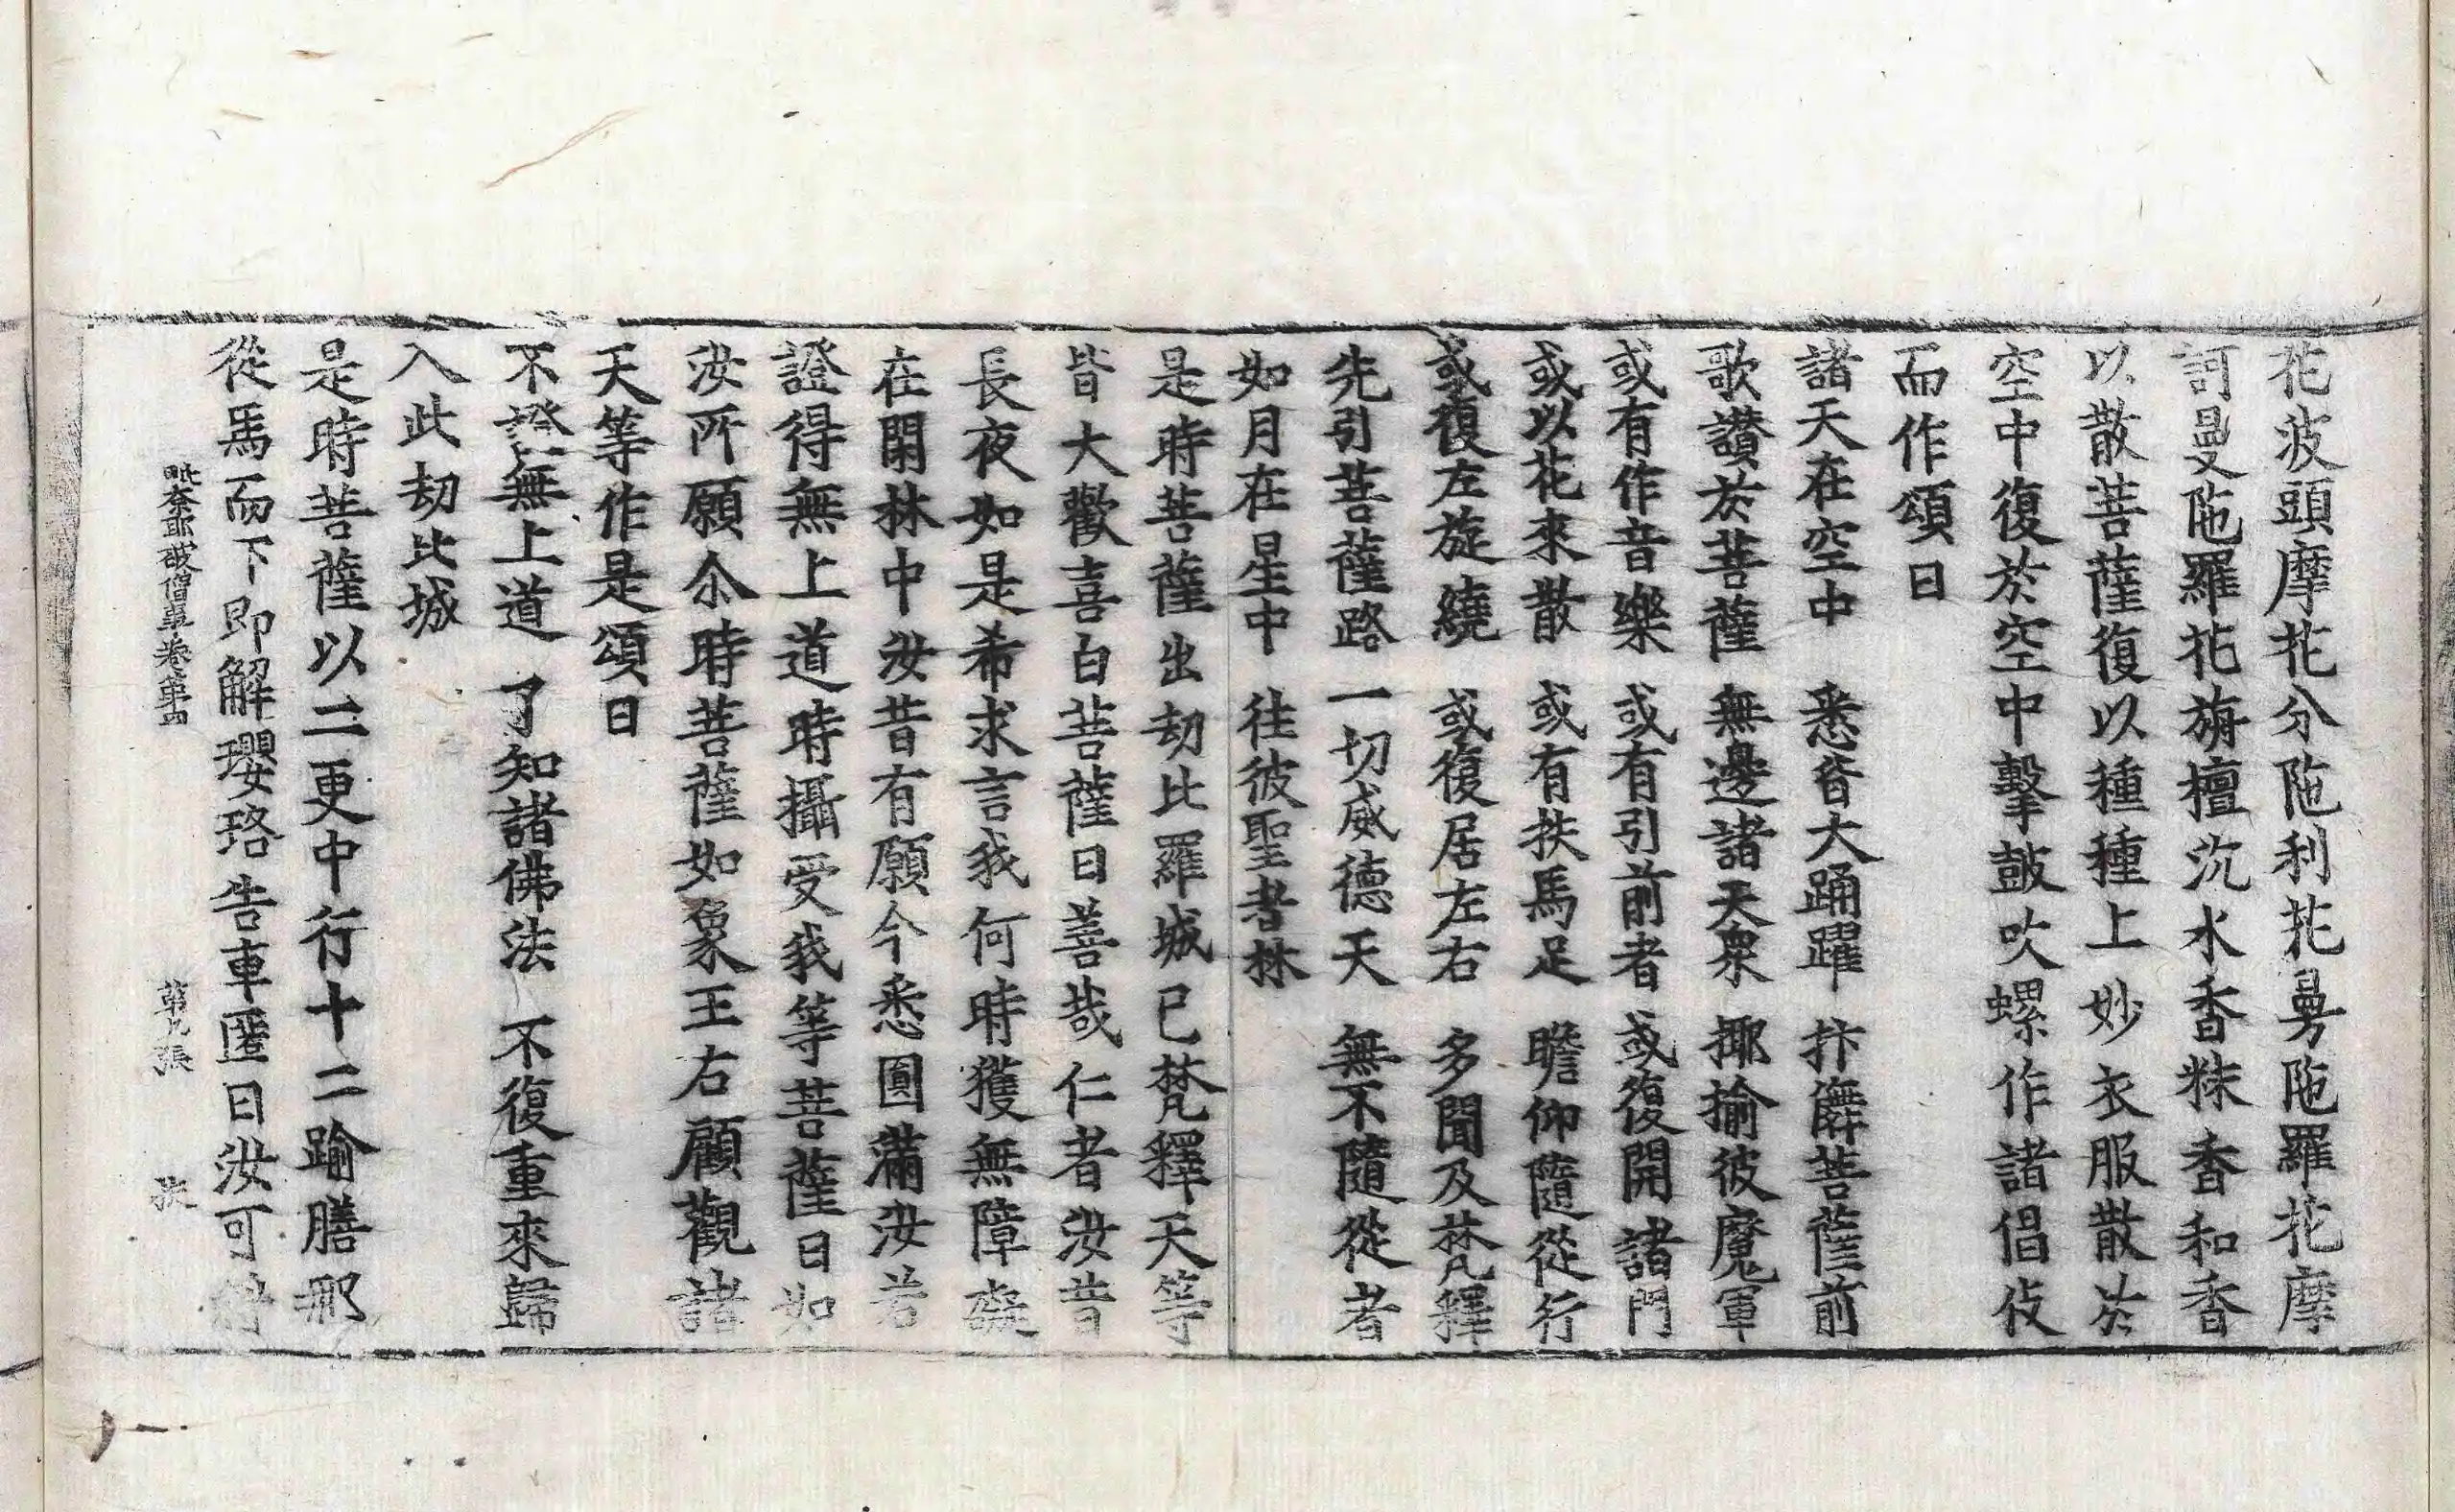 花波頭摩花分陁利花曼陁羅花摩
訶曼陁羅花旃檀沉水香粖香和香
以散菩薩復以種種上妙衣服散於
空中復於空中擊鼓吹螺作諸倡伎
而作頌曰
諸天在空中　悉皆大踊躍　抃儛菩薩前
歌讃於菩薩　無邊諸天衆　揶揄彼魔軍
或有作音樂　或有引前者　或復開諸門
或以花來散　或有扶馬足　瞻仰隨從行
或復左旋繞　或復居左右　多聞及梵釋
先引菩薩路　一切威德天　無不隨從者
如月在星中　往彼聖者林
是時菩薩出劫比羅城已梵釋天等
皆大歡喜白菩薩曰善哉仁者汝昔
長夜如是希求言我何時獲無障礙
在閑林中汝昔有願今悉圓滿汝若
證得無上道時攝受我等菩薩曰如
汝所願尒時菩薩如象王右顧觀諸
天等作是頌曰
不證無上道　了知諸佛法　不復重來歸
入此劫比城
是時菩薩以二更中行十二踰膳那
從馬而下即解瓔珞告車匿曰汝可
毗奈耶破僧事卷第四　第九張